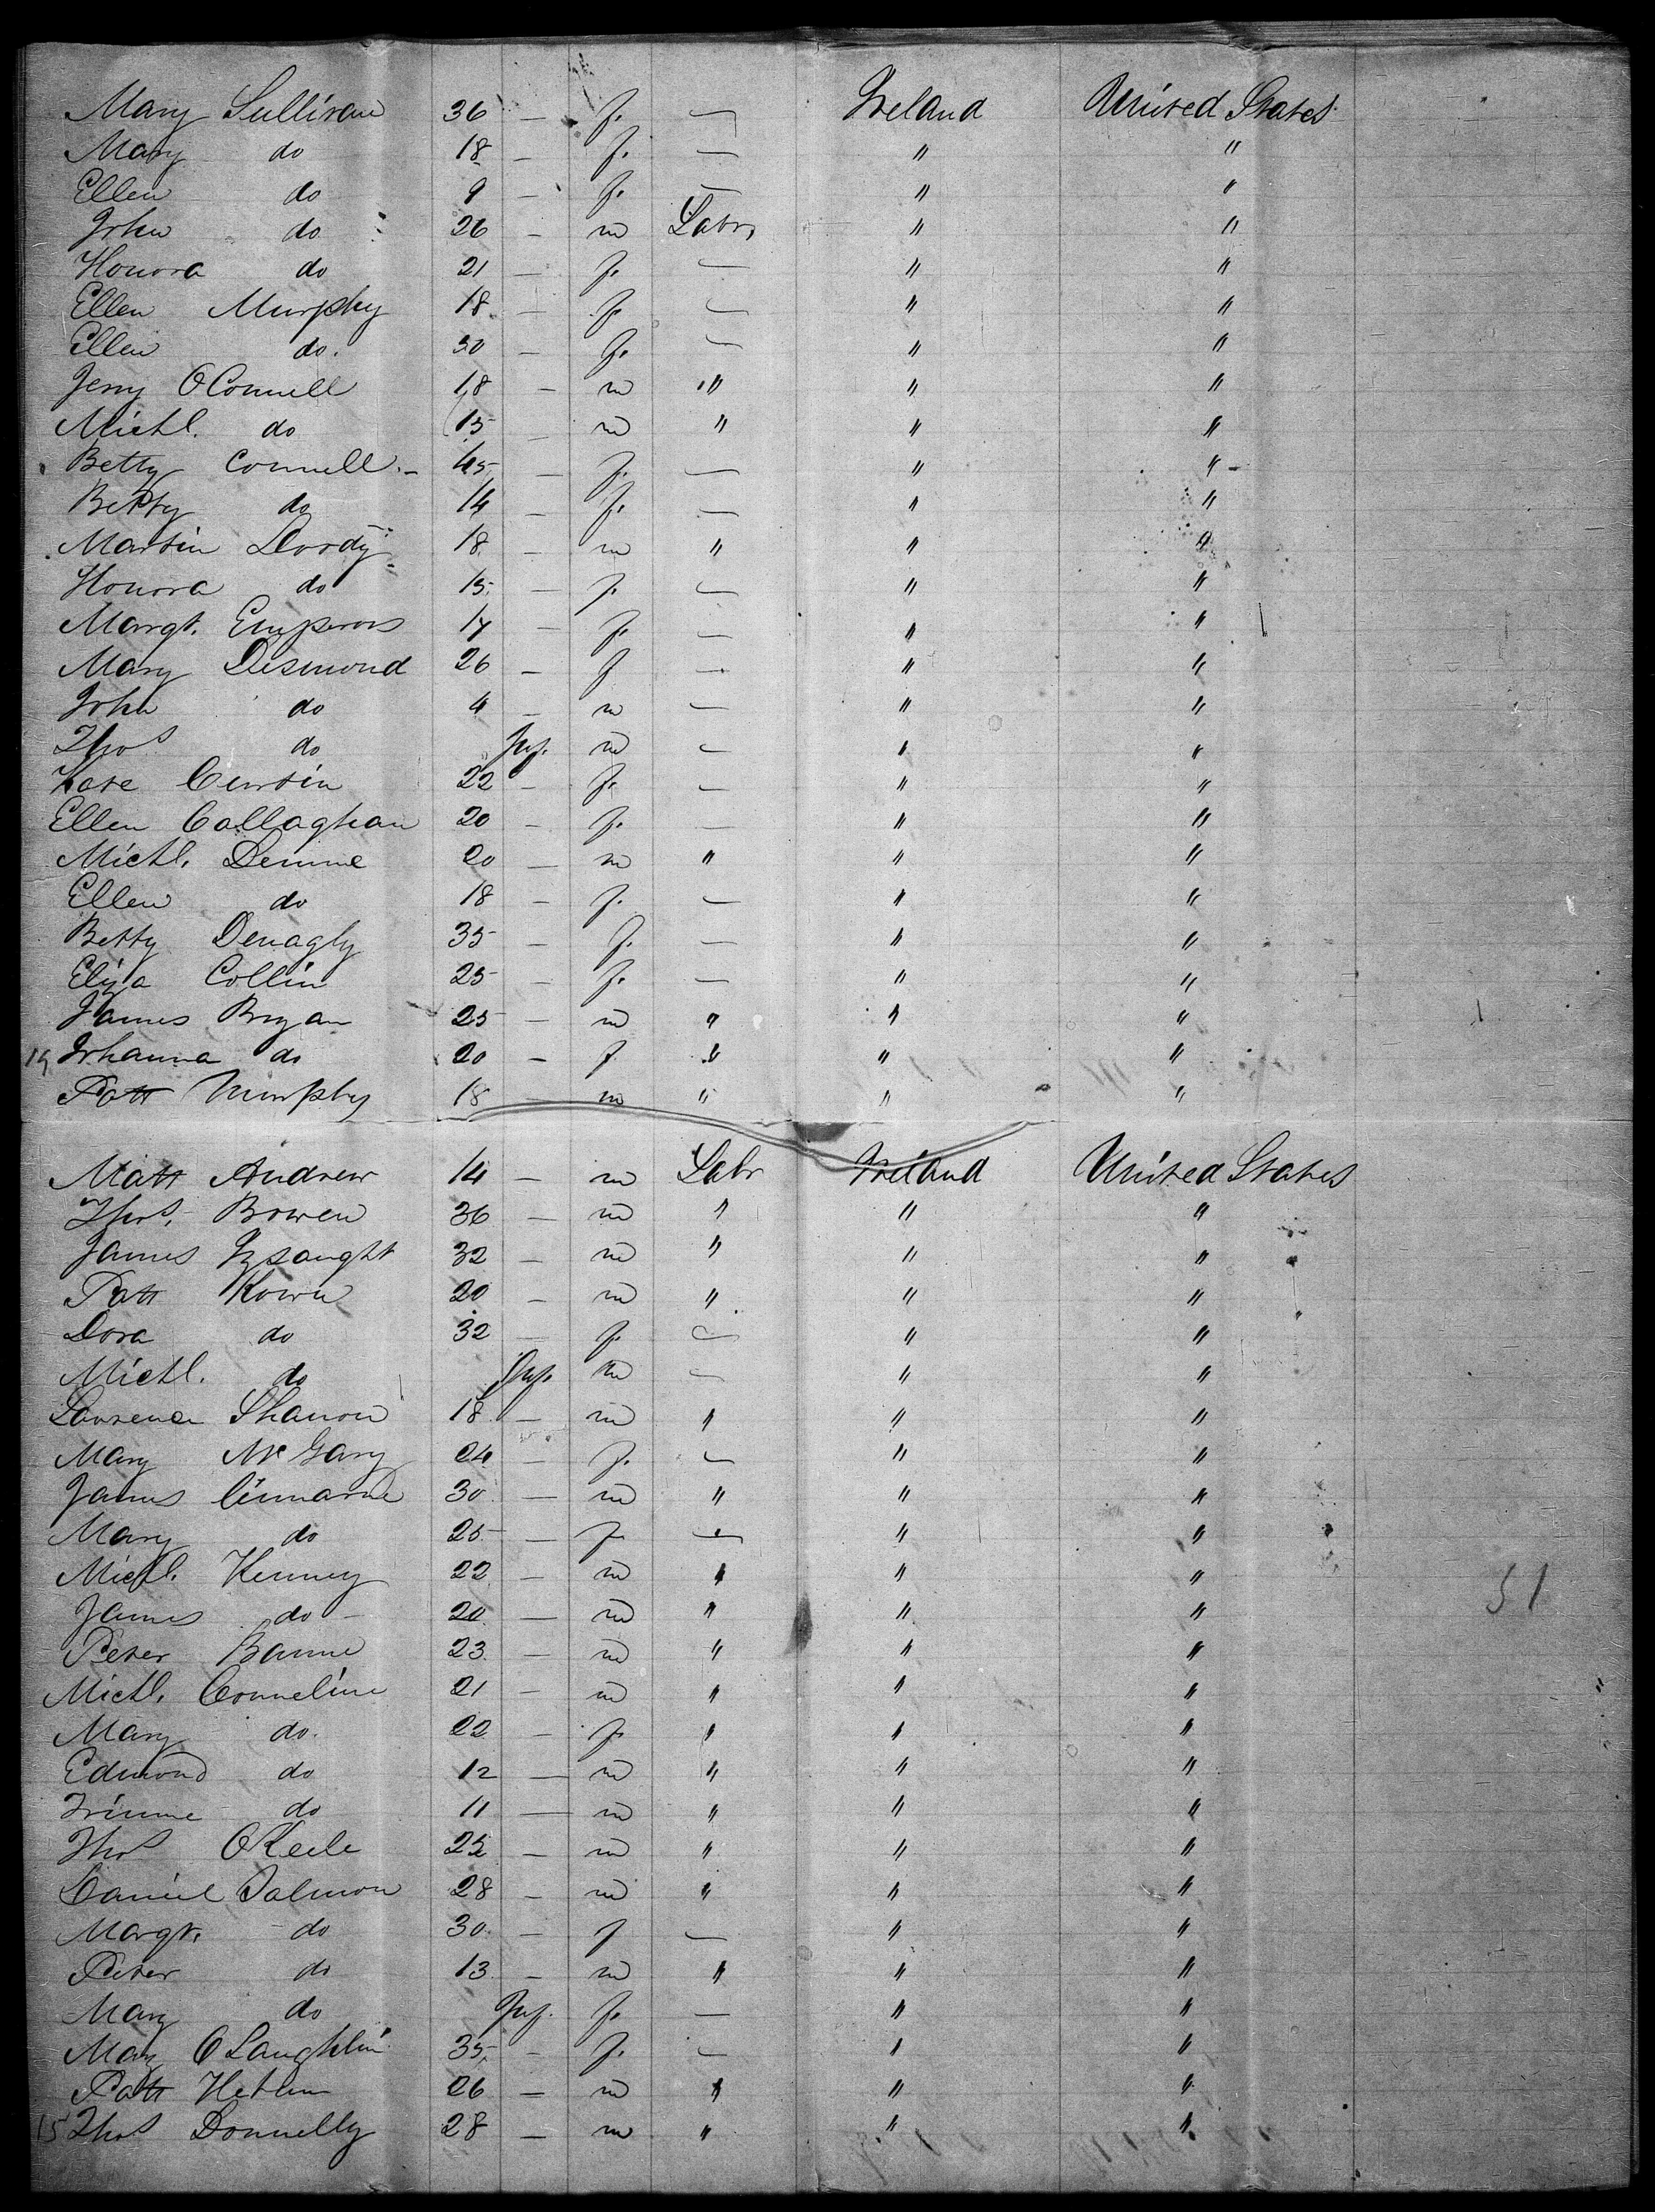 Mary Sullivan 36 — f. — Ireland United States
Mary do 18 — f. — " "
Ellen do 9 — f. — " "
John do 26 — m Labr, " "
Honora do 21 — f. — " "
Ellen Murphy 18 — f. — " "
Ellen do. 30 — f. — " "
Jerry OConnell 18 — m " " "
Michl. do 15 — m " " "
Betty Connell. 45 — f. — " "
Betty do 14 — f. — " "
Martin Doody 18 — m " " "
Honora do 15 — f. — " "
Margt. 17 — f. — " "
Mary Desmond 26 — f — " "
John do 4 — m — " "
Thos do Inf. m — " "
Kate Curtin 22 — f. — " "
Ellen Callaghan 20 — f. — " "
Michl. 20 — m " " "
Ellen do 18 — f. — " "
Betty 35 — f. — " "
Eliza Collin 25 — f. — " "
James Bryan 25 — m " " "
19 Johanna do 20 — f " " "
Patt Murphy 18 — m " " "
Matt Andrew 14 — m Labr Ireland United States
Thos. Bowen 36 — m " " "
James 32 — m " " "
Patt 20 — m " " "
Dora do 32 — f. — " "
Michl. do Inf. m — " "
Lawrence Shanon 18 — m " " "
Mary McGary 24 — f. — " "
James 30 — m " " "
Mary do 25 — f — " "
Michl. Kenney 22 — m " " "
James do 20 — m " " " 51
Peter 23 — m " " "
Michl. Conneline 21 — m " " "
Mary do. 22 — f " " "
Edmond do 12 — m " " "
do 11 — m " " "
Thos 25 — m " " "
Daniel Salmon 28 — m " " "
Margt. do 30 — f — " "
Peter do 13 — m " " "
Mary do Inf. f. — " "
Mary OLaughlin 35 — f. — " "
Patt 26 — m " " "
15 Thos Donnelly 28 — m " " "